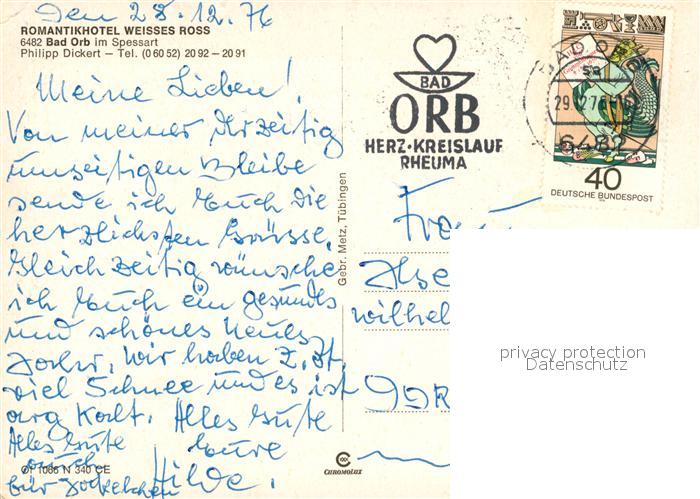 Den 28.12.76
ROMANTIKHOTEL WEISSES ROSS
6482 Bad Orb im Spessart
Philipp Dickert – Tel. (0 60 52) 20 92 – 20 91
Meine Lieben!
Von meiner derzeitig
unzeitigen Bleibe
sende ich Euch die
herzlichsten Grüsse.
Gleichzeitig wünsche
ich Euch ein gesundes
und schönes Neues
Jahr. Wir haben z. Zt.
viel Schnee und es ist
arg kalt. Alles Gute
Eure
Hilde.
Alles Gute
auch
für
OF 1086 N 340 CE
Gebr. Metz, Tübingen
CHROMOLUX
BAD
ORB
HERZ·KREISLAUF
RHEUMA
BAD ORB
sa
29.12.76
6482
40
DEUTSCHE BUNDESPOST
Ilse
Wilhel
privacy protection
Datenschutz